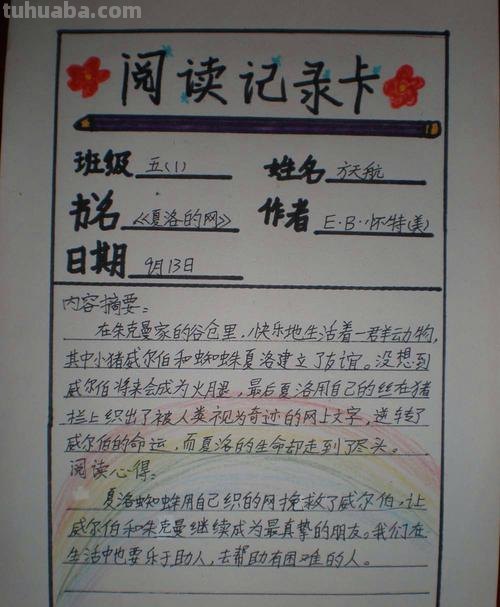 tuhuaba.com
阅读记录卡
班级 五(1) 姓名 方天航
书名 《夏洛的网》 作者 E·B·怀特(美)
日期 9月13日
内容摘要：
在朱克曼家的谷仓里，快乐地生活着一群动物，
其中小猪威尔伯和蜘蛛夏洛建立了友谊。没想到
威尔伯将来会成为火月退，最后夏洛用自己的丝在猪
栏上织出了被人类视为奇迹的网上文字，逆转了
威尔伯的命运，而夏洛的生命却走到了尽头。
阅读心得：
夏洛蜘蛛用自己织的网挽救了威尔伯，让
威尔伯和朱克曼继续成为最真挚的朋友。我们在
生活中也要乐于助人，去帮助有困难的人。